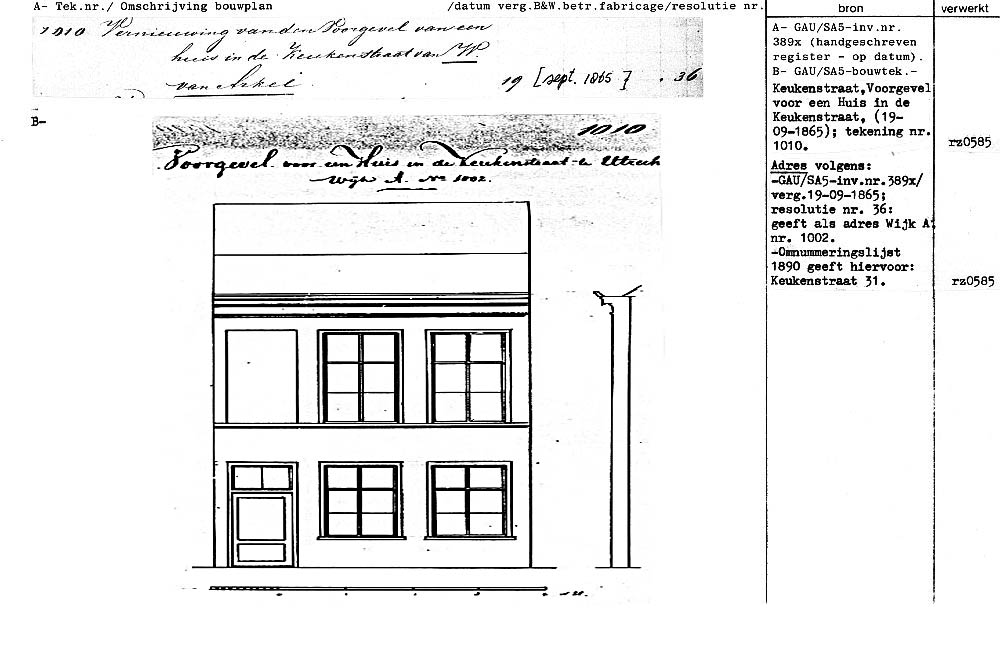 A- Tek.nr./ Omschrijving bouwplan /datum verg.B&W.betr.fabricage/resolutie nr.
1010 Vernieuwing van den Voorgevel van een
huis in de Keukenstraat van W.
van Arkel. 19 [sept. 1865] . 36
B-
1010
Voorgevel voor een Huis in de Keukenstraat te Utrecht
Wijk A. No 1002.
bron
verwerkt
A- GAU/SA5-inv.nr.
389x (handgeschreven
register - op datum).
B- GAU/SA5-bouwtek.-
Keukenstraat,Voorgevel
voor een Huis in de
Keukenstraat, (19-
09-1865); tekening nr.
1010.
rz0585
Adres volgens:
-GAU/SA5-inv.nr.389x/
verg.19-09-1865;
resolutie nr. 36:
geeft als adres Wijk A;
nr. 1002.
-Omnummeringslijst
1890 geeft hiervoor:
Keukenstraat 31.
rz0585